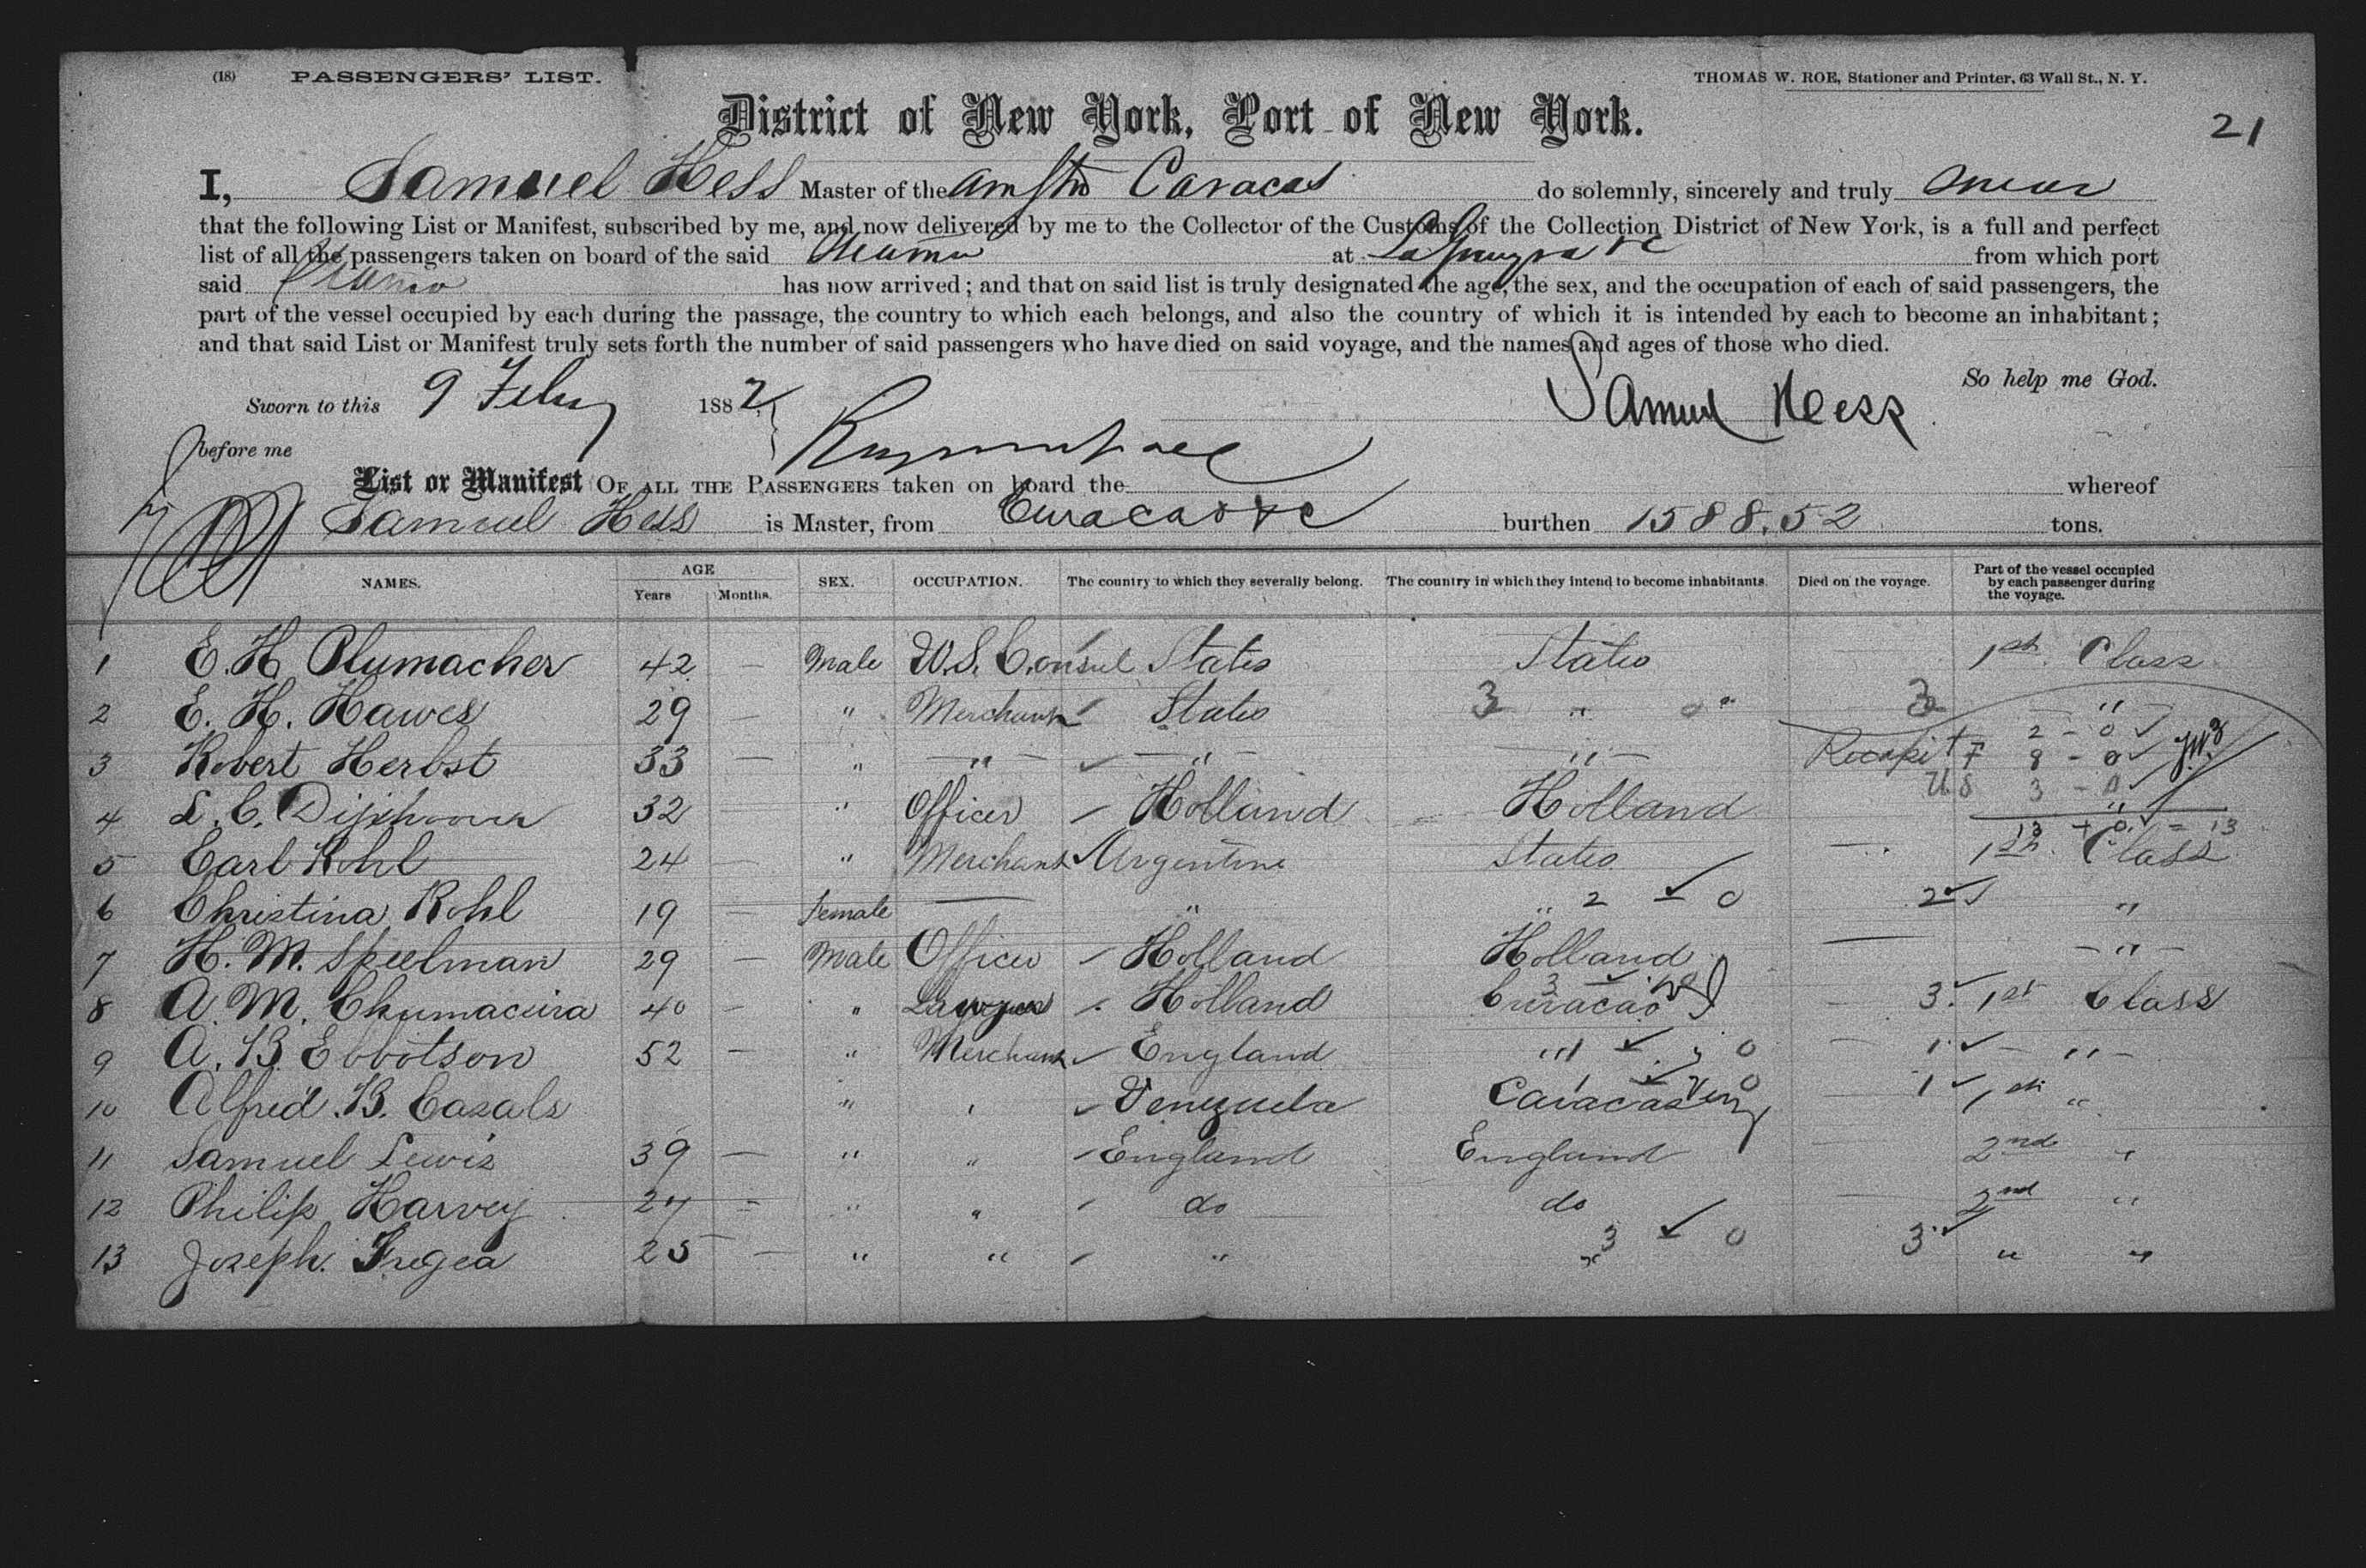 (18) PASSENGERS' LIST.
THOMAS W. ROE, Stationer and Printer, 63 Wall St., N. Y.
District of New York, Port of New York.
21
I, Samuel Hess Master of the Am Str Caracas do solemnly, sincerely and truly swear
that the following List or Manifest, subscribed by me, and now delivered by me to the Collector of the Customs of the Collection District of New York, is a full and perfect
list of all the passengers taken on board of the said Steamer at La Guayra &c from which port
said Steamer has now arrived; and that on said list is truly designated the age, the sex, and the occupation of each of said passengers, the
part of the vessel occupied by each during the passage, the country to which each belongs, and also the country of which it is intended by each to become an inhabitant;
and that said List or Manifest truly sets forth the number of said passengers who have died on said voyage, and the names and ages of those who died.
So help me God.
Sworn to this 9 Feby 1882, Samuel Hess
before me
List or Manifest OF ALL THE PASSENGERS taken on board the whereof
Samuel Hess is Master, from Curacao &c burthen 1588.52 tons.
NAMES. AGE Years Months. SEX. OCCUPATION. The country to which they severally belong. The country in which they intend to become inhabitants. Died on the voyage. Part of the vessel occupied by each passenger during the voyage.
1 E. H. Plumacher 42 — Male U.S. Consul States States 1st Class
2 E. H. Hawes 29 — " Merchant States 3 " 0 " "
2 - 0
3 Robert Herbst 33 — " — " — — " — — " —
8 - 0
U S 3 - 0
4 L. C. 32 — " Officer Holland Holland "
13 + 0 = 13
5 Carl Kohl 24 — " Merchant Argentine States — 1st Class
6 Christina Kohl 19 — Female — " " 2 0 2 "
7 H. M. Speelman 29 — Male Officer Holland Holland — — " —
8 A. M. Chumaceira 40 — " Lawyer Holland Curacao 3 — 3 1st Class
9 A. B. Ebbotson 52 — " Merchant England " 1 0 — 1 — " —
10 Alfred B. Casals " " Venezuela Caracas Ven 1 0 1 1st "
11 Samuel Lewis 39 — " " England England — 2nd "
12 Philip Harvey 27 — " " do do — 2nd "
13 Joseph 25 — " " " " 3 0 3 " "